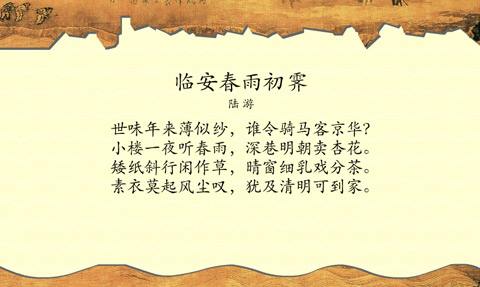 临安春雨初霁
陆游
世味年来薄似纱，谁令骑马客京华？
小楼一夜听春雨，深巷明朝卖杏花。
矮纸斜行闲作草，晴窗细乳戏分茶。
素衣莫起风尘叹，犹及清明可到家。